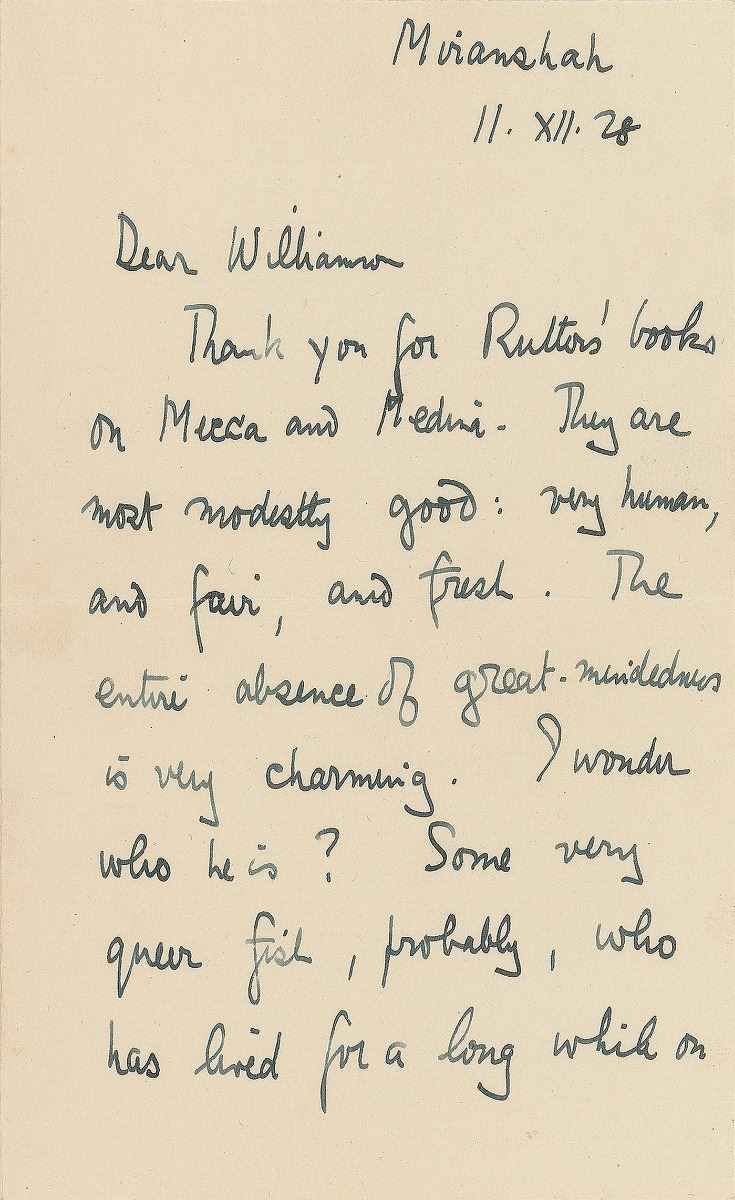 Miranshah
11. XII. 28
Dear Williamson
Thank you for Rutters' books
on Mecca and Medina. They are
most modestly good: very human,
and fair, and fresh. The
entire absence of great-mindedness
is very charming. I wonder
who he is? Some very
queer fish, probably, who
has lived for a long while on